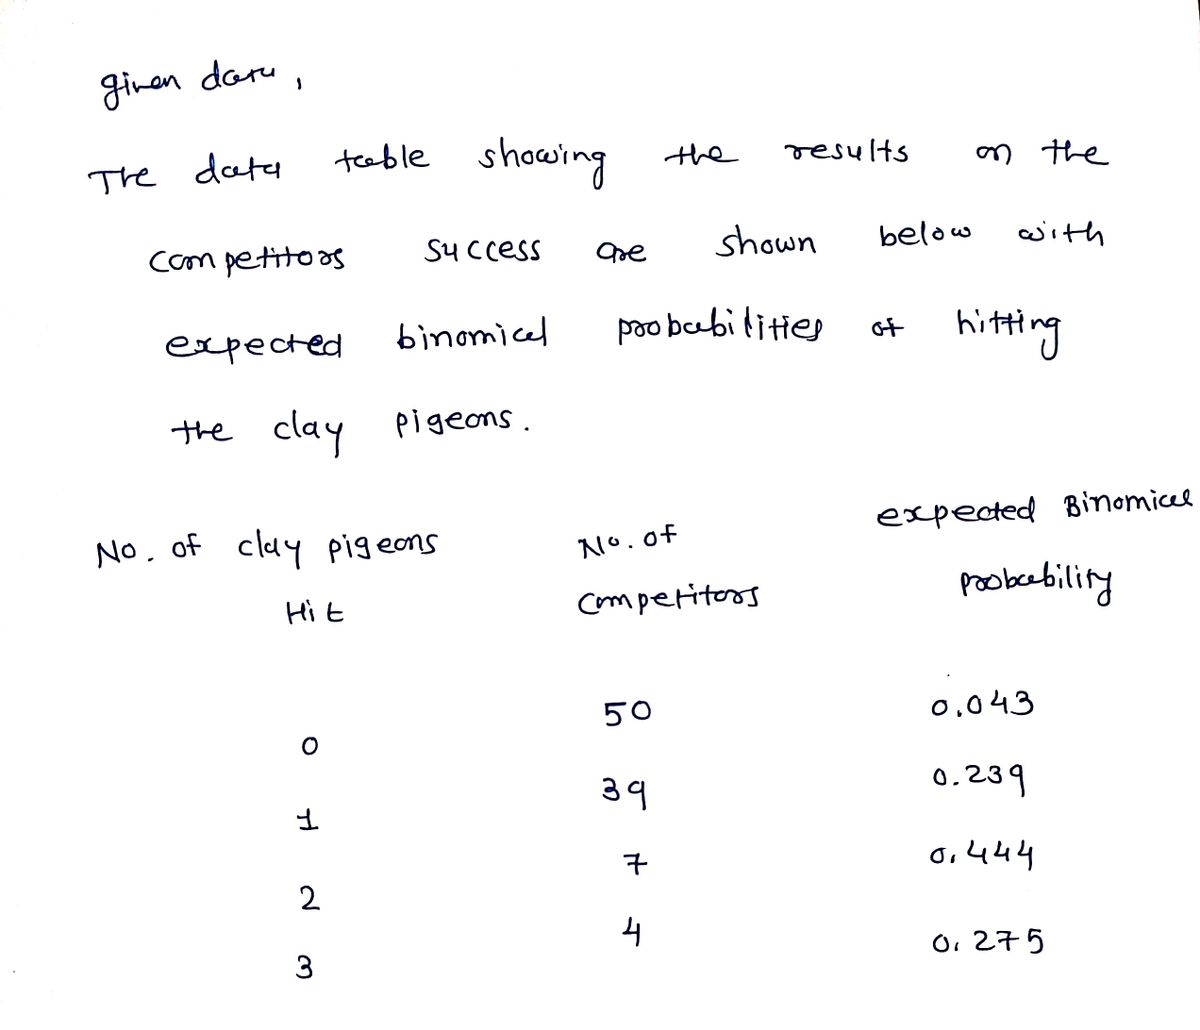 given data,
The data table showing the results on the
competitors success are shown below with
expected binomial probabilities of hitting
the clay pigeons.
No. of clay pigeons Hit No. of competitors expected Binomial probability
0 50 0.043
1 39 0.239
2 7 0.444
3 4 0.275